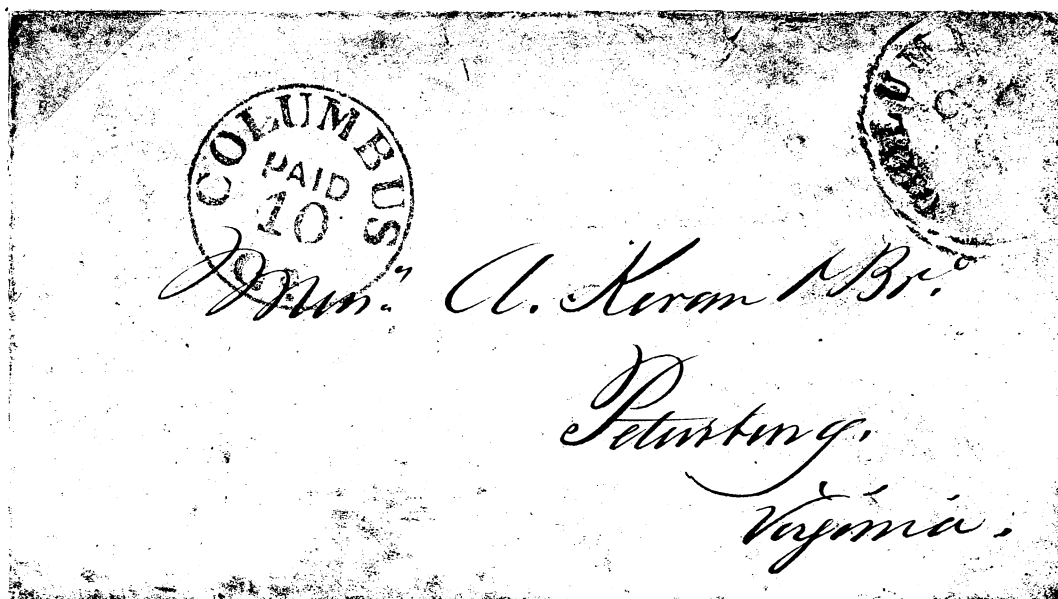 COLUMBUS
PAID
10
COLUM
Mess.rs A. Keran & Bro.
Petersburg.
Virginia.